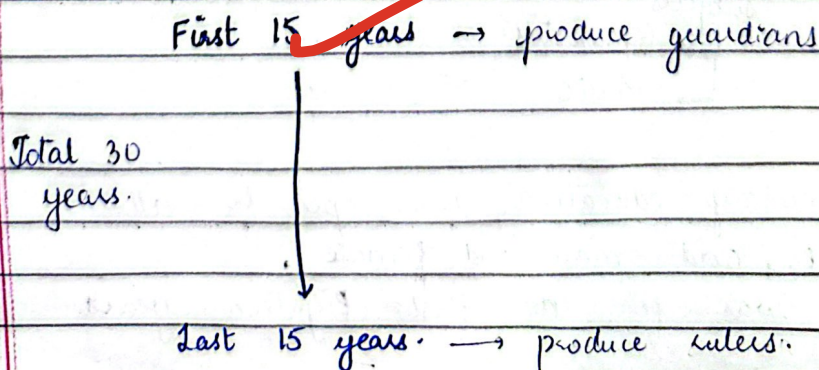 First 15 years → produce guardians
Total 30
years.
Last 15 years. → produce rulers.